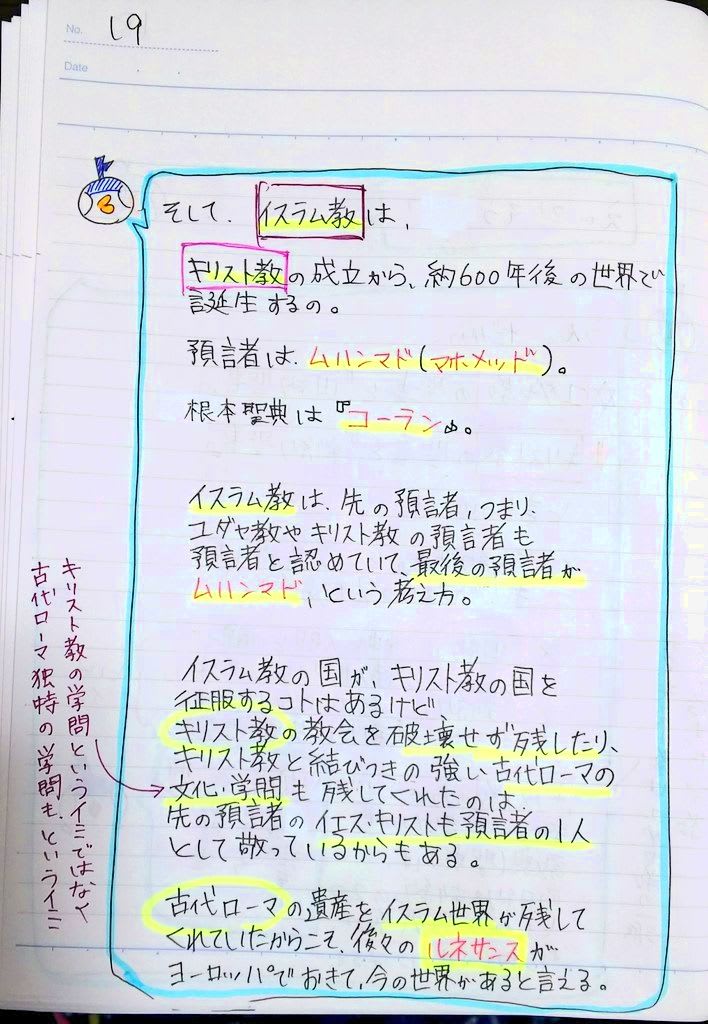 No. 19
Date
そして、イスラム教は、
キリスト教の成立から、約600年後の世界で
誕生するの。
預言者は、ムハンマド(マホメッド)。
根本聖典は『コーラン』。
イスラム教は、先の預言者、つまり、
ユダヤ教やキリスト教の預言者も
預言者と認めていて、最後の預言者が
ムハンマド、という考え方。
イスラム教の国が、キリスト教の国を
征服するコトはあるけど、
キリスト教の教会を破壊せず残したり、
キリスト教と結びつきの強い古代ローマの
文化・学問も残してくれたのは、
先の預言者のイエス・キリストも預言者の1人
として敬っているからもある。
古代ローマの遺産をイスラム世界が残して
くれていたからこそ、後々のルネサンスが
ヨーロッパでおきて、今の世界があると言える。
キリスト教の学問というイミではなく
古代ローマ独特の学問も、というイミ